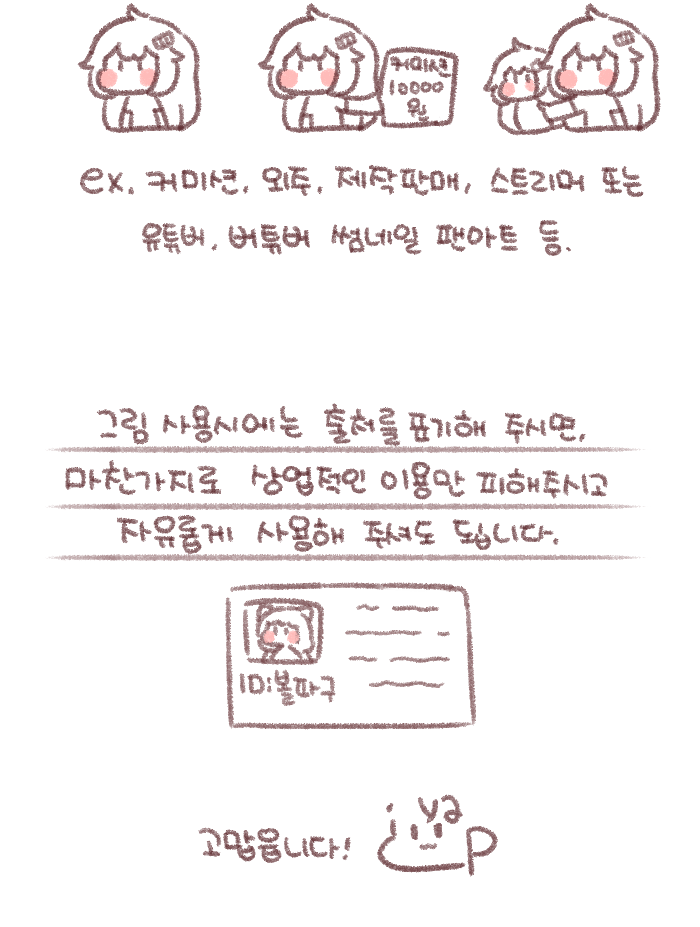 커미션
10000
원
ex. 커미션, 외주, 제작판매, 스트리머 또는
유튜버, 버튜버 썸네일 팬아트 등.
그림 사용시에는 출처를 표기해 주시면,
마찬가지로 상업적인 이용만 피해주시고
자유롭게 사용해 주셔도 됩니다.
ID:볼따구
고맙읍니다!